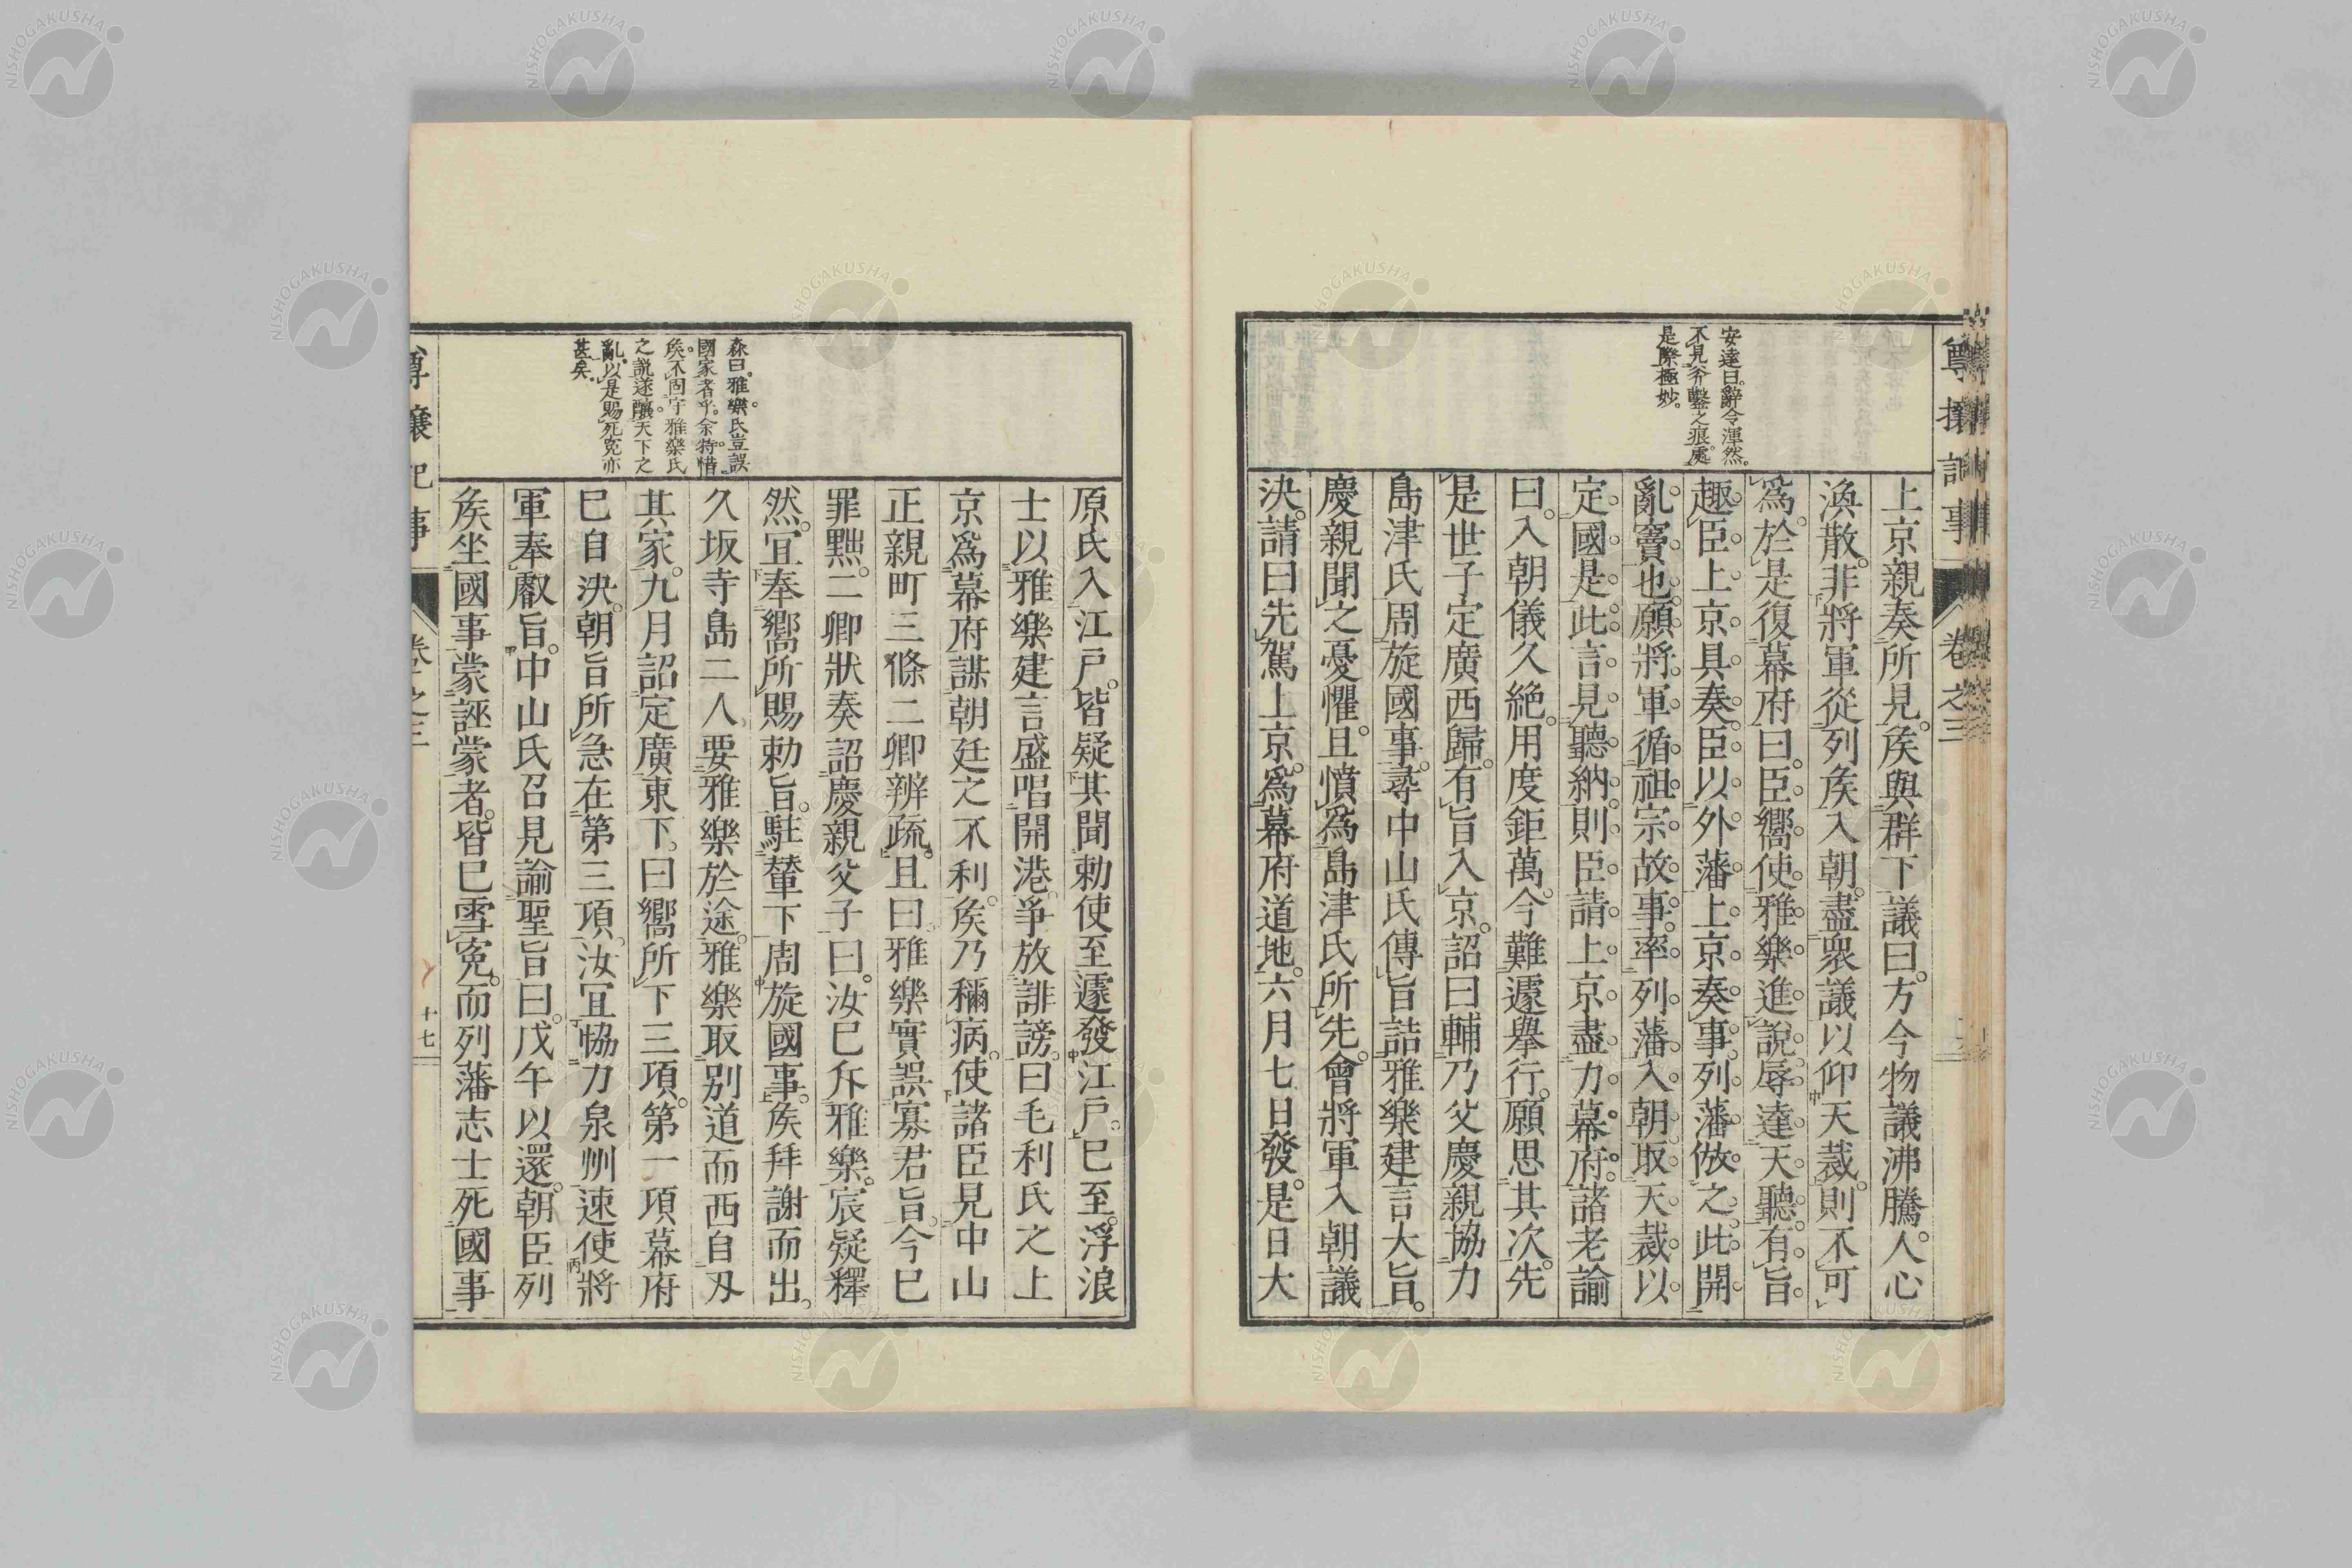 尊攘記事
卷之三
安達曰。辭令渾然。
不見斧鑿之痕。處
是際極妙。
上京親奏所見。矦與群下議曰。方今物議沸騰。人心
渙散。非將軍從列矦入朝。盡衆議以仰天裁。則不可
爲。於是復幕府曰。臣嚮使雅樂進說辱達天聽。有旨
趣臣上京具奏。臣以外藩上京奏事。列藩倣之。此開
亂竇也。願將軍循祖宗故事。率列藩入朝取天裁。以
定國是。此言見聽納。則臣請上京盡力幕府。諸老諭
曰。入朝儀久絶。用度鉅萬。今難遽舉行。願思其次。先
是世子定廣西歸。有旨入京。詔曰輔乃父慶親協力
島津氏周旋國事。尋中山氏傳旨詰雅樂建言大旨。
慶親聞之憂懼。且憤爲島津氏所先。會將軍入朝議
決。請曰先駕上京。爲幕府道地。六月七日發。是日大
森曰。雅樂氏豈誤
國家者乎。余特惜
矦不固守雅樂氏
之說。遂釀天下之
亂。以是賜死寃亦
甚矣。
原氏入江戸。皆疑其聞勅使至遽發江戸。已至。浮浪
士以雅樂建言盛唱開港。爭放誹謗。曰毛利氏之上
京爲幕府謀朝廷之不利。矦乃稱病。使諸臣見中山
正親町三條二卿辨疏。且曰雅樂實誤寡君旨。今已
罪黜。二卿狀奏詔慶親父子曰。汝已斥雅樂。宸疑釋
然。宜奉嚮所賜勅旨。駐輦下周旋國事。矦拜謝而出。
久坂寺島二人要雅樂於途。雅樂取別道而西自刄
其家。九月詔定廣東下。曰嚮所下三項。第一項幕府
已自決。朝旨所急在第三項。汝宜恊力泉州速使將
軍奉叡旨。中山氏召見諭聖旨曰。戊午以還。朝臣列
矦坐國事蒙誣蒙者。皆已雪寃。而列藩志士死國事
尊攘記事
卷之三
十七